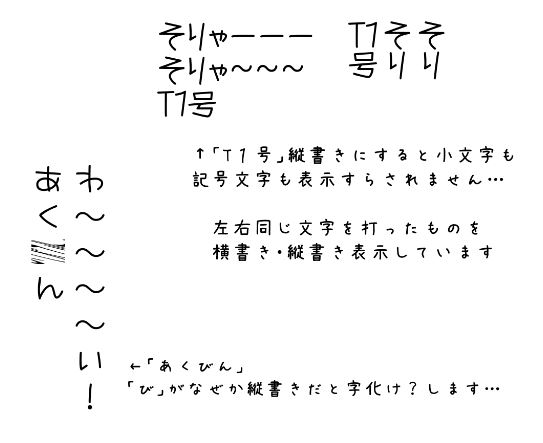 そりゃーーー
そりゃ～～～
T1号
T1号
そり
そり
↑「T1号」縦書きにすると小文字も
記号文字も表示すらされません…
左右同じ文字を打ったものを
横書き・縦書き表示しています
わ～～～～い！
あくん
←「あくびん」
「び」がなぜか縦書きだと字化け？します…